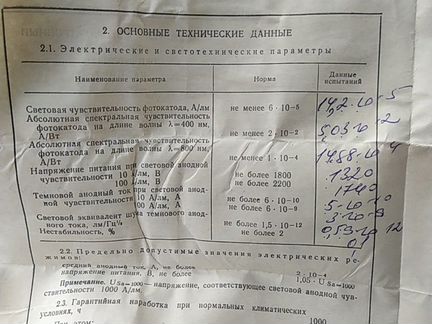 2. ОСНОВНЫЕ ТЕХНИЧЕСКИЕ ДАННЫЕ
2.1. Электрические и светотехнические параметры
Наименование параметра Норма Данные испытаний
Световая чувствительность фотокатода, А/лм не менее 6·10−5 142·10−5
Абсолютная спектральная чувствительность
фотокатода на длине волны λ=400 нм,
А/Вт не менее 2·10−2 5,03·10−2
Абсолютная спектральная чувствительность
фотокатода на длине волны λ=800 нм,
А/Вт не менее 1·10−4
Напряжение питания при световой анодной
чувствительности 10 А/лм, В не более 1800 1320
100 А/лм, В не более 2200 1740
Темновой анодный ток при световой анод-
ной чувствительности 10 А/лм, А не более 6·10−10 5·10−10
100 А/лм, А не более 6·10−9
Световой эквивалент шума темнового анод-
ного тока, лм/Гц½ не более 1,5·10−12
Нестабильность, % не более 2
2.2. Предельно допустимые значения электрических ре-
жимов:
средний анодный ток, А, не более 2·10−4
напряжение питания, В, не более 1,05·U Sa=1000
Примечание. U Sa=1000 — напряжение, соответствующее световой анодной чув-
ствительности 1000 А/лм.
2.3. Гарантийная наработка при нормальных климатических
условиях, ч 1000